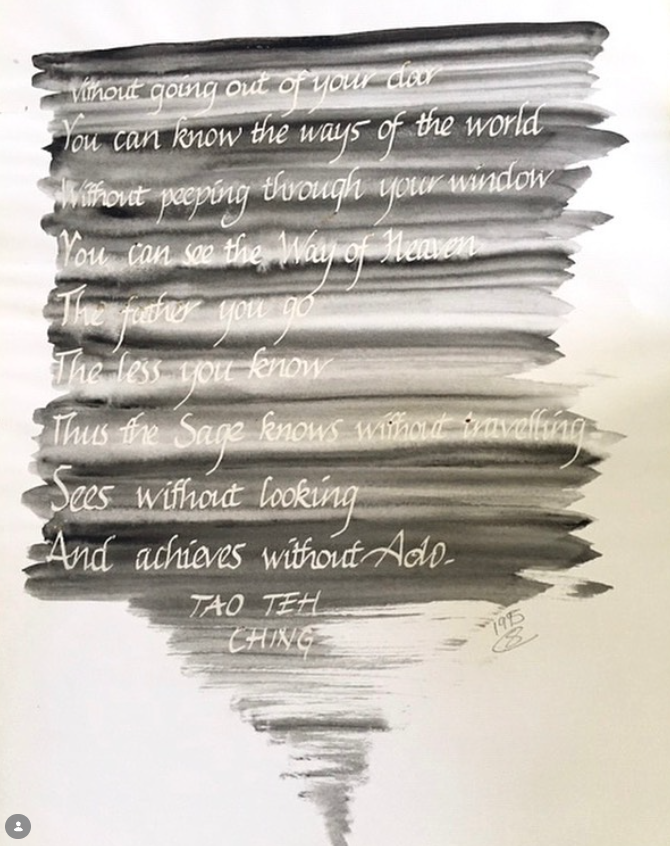 Without going out of your door
You can know the ways of the world
Without peeping through your window
You can see the Way of Heaven
The futher you go
The less you know
Thus the Sage knows without travelling
Sees without looking
And achieves without Ado.
TAO TEH
CHING
1995